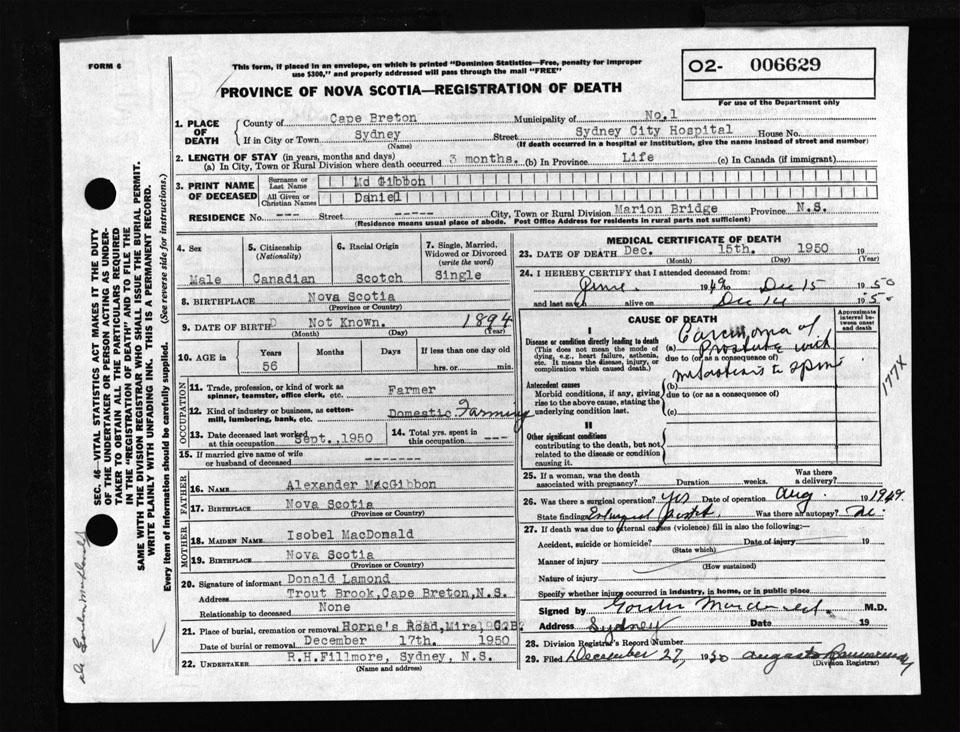 FORM 6
This form, if placed in an envelope, on which is printed "Dominion Statistics—Free, penalty for improper
use $300," and properly addressed will pass through the mail "FREE"
O2- 006629
For use of the Department only
PROVINCE OF NOVA SCOTIA—REGISTRATION OF DEATH
1. PLACE OF DEATH
County of Cape Breton Municipality of No.1
If in City or Town Sydney Street Sydney City Hospital House No.
(Name) (If death occurred in a hospital or institution, give the name instead of street and number)
2. LENGTH OF STAY (in years, months and days)
(a) In City, Town or Rural Division where death occurred 3 months. (b) In Province Life (c) In Canada (if immigrant)
3. PRINT NAME OF DECEASED
Surname or Last Name Mc Gibbon
All Given or Christian Names Daniel
RESIDENCE No. --- Street ----- City, Town or Rural Division Marion Bridge Province N.S.
(Residence means usual place of abode. Post Office Address for residents in rural parts not sufficient)
4. Sex Male
5. Citizenship (Nationality) Canadian
6. Racial Origin Scotch
7. Single, Married, Widowed or Divorced (write the word) Single
8. BIRTHPLACE Nova Scotia
(Province or Country)
9. DATE OF BIRTH Not Known. 1894
(Month) (Day) (Year)
10. AGE in Years Months Days If less than one day old
56 hrs. or min.
OCCUPATION
11. Trade, profession, or kind of work as spinner, teamster, office clerk, etc. Farmer
12. Kind of industry or business, as cotton-mill, lumbering, bank, etc. Domestic Farming
13. Date deceased last worked at this occupation Sept., 1950
14. Total yrs. spent in this occupation ---
15. If married give name of wife or husband of deceased -------
FATHER
16. NAME Alexander MacGibbon
17. BIRTHPLACE Nova Scotia
(Province or Country)
MOTHER
18. MAIDEN NAME Isobel MacDonald
19. BIRTHPLACE Nova Scotia
(Province or Country)
20. Signature of informant Donald Lamond
Address Trout Brook, Cape Breton, N.S.
Relationship to deceased None
21. Place of burial, cremation or removal Horne's Road, Mira,
Date of burial or removal December 17th. 1950
22. UNDERTAKER R.H.Fillmore, Sydney, N.S.
(Name and address)
MEDICAL CERTIFICATE OF DEATH
23. DATE OF DEATH Dec. 15th. 1950 19
(Month) (Day) (Year)
24. I HEREBY CERTIFY that I attended deceased from:
June 1949 to Dec 15 1950
and last saw alive on Dec 14 195
CAUSE OF DEATH
Approximate interval between onset and death
I
Disease or condition directly leading to death
(This does not mean the mode of dying, e.g., heart failure, asthenia, etc. It means the disease, injury, or complication which caused death.)
(a) Carcinoma of Prostate with
due to (or as a consequence of)
metastasis to spine
Antecedent causes
Morbid conditions, if any, giving rise to the above cause, stating the underlying condition last.
(b)
due to (or as a consequence of)
(c)
177X
II
Other significant conditions
contributing to the death, but not related to the disease or condition causing it.
25. If a woman, was the death associated with pregnancy? Duration weeks. Was there a delivery?
26. Was there a surgical operation? Yes Date of operation Aug. 19 1949.
State findings Was there an autopsy? No.
27. If death was due to external causes (violence) fill in also the following:—
Accident, suicide or homicide? Date of injury 19
(State which)
Manner of injury
(How sustained)
Nature of injury
Specify whether injury occurred in industry, in home, or in public place
Signed by Gordon Macdonald. M.D.
Address Sydney Date 19
28. Division Registrar's Record Number
29. Filed December 27, 1950
(Division Registrar)
SEC. 46—VITAL STATISTICS ACT MAKES IT THE DUTY
OF THE UNDERTAKER OR PERSON ACTING AS UNDER-
TAKER TO OBTAIN ALL THE PARTICULARS REQUIRED
IN THE "REGISTRATION OF DEATH" AND TO FILE THE
SAME WITH THE DIVISION REGISTRAR WHO SHALL ISSUE THE BURIAL PERMIT.
WRITE PLAINLY WITH UNFADING INK. THIS IS A PERMANENT RECORD.
Every item of information should be carefully supplied. (See reverse side for instructions.)